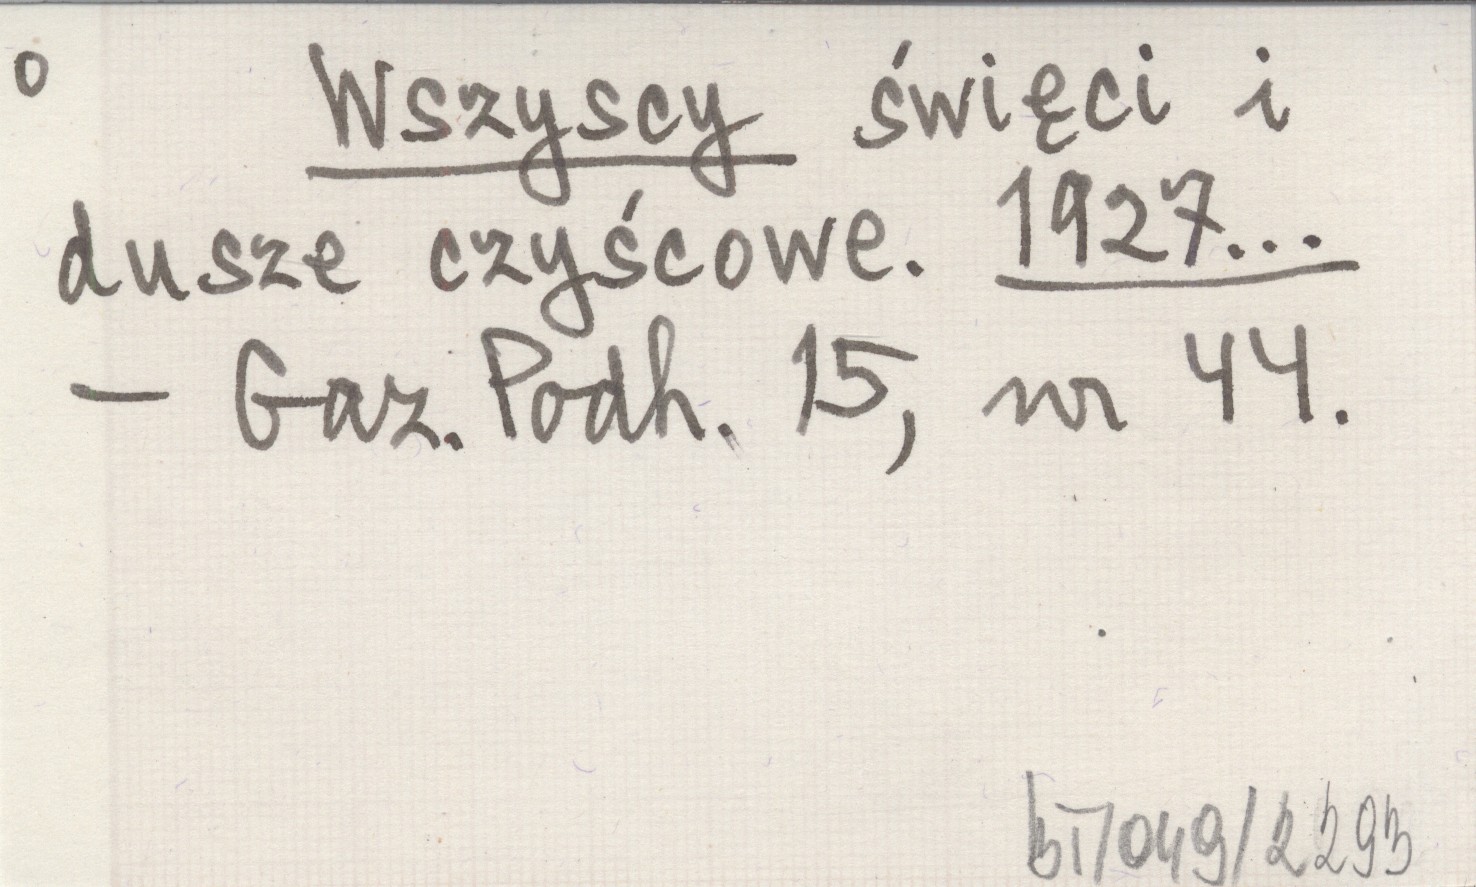 o Wszyscy święci i
dusze czyśćcowe. 1927...
— Gaz. Podh. 15, nr 44.
bT/049/2293